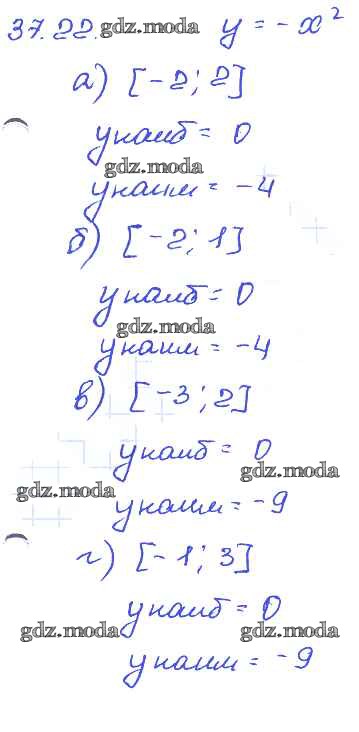 37.22. gdz.moda y = -x²
а) [-2; 2]
yнаиб = 0
gdz.moda
yнаим = -4
б) [-2; 1]
yнаиб = 0
gdz.moda
yнаим = -4
в) [-3; 2]
yнаиб = 0
gdz.moda
gdz.moda
yнаим = -9
г) [-1; 3]
yнаиб = 0
gdz.moda gdz.moda
yнаим = -9